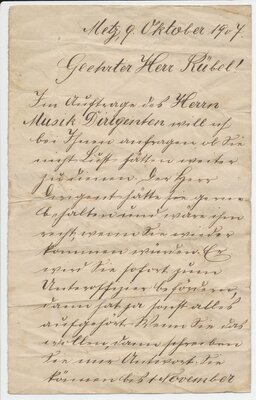 Metz, 9. Oktober 1907.
Geehrter Herr Kübel!
Im Auftrage des Herrn
Musik Dirigenten will ich
bei Ihnen anfragen ob Sie
nicht Lust hätten weiter
zu dienen. Der Herr
Dirigent hätte sie gerne
behalten und wäre ihm
recht, wenn Sie wieder
kommen würden. Er
wird Sie sofort zum
Unteroffizier befördern,
dann hat ja sonst alles
aufgehört. Wenn Sie das
wollen, dann schreiben
Sie mir Antwort. Sie
können bis 1 November